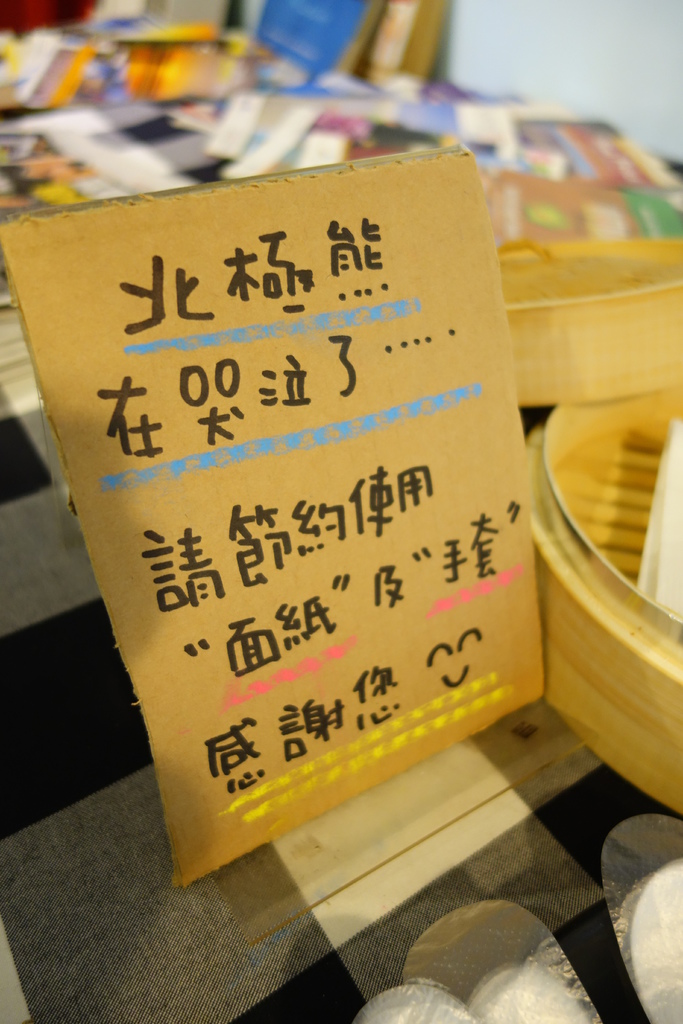 北極熊
在哭泣了.....
請節約使用
“面紙”及“手套”
感謝您